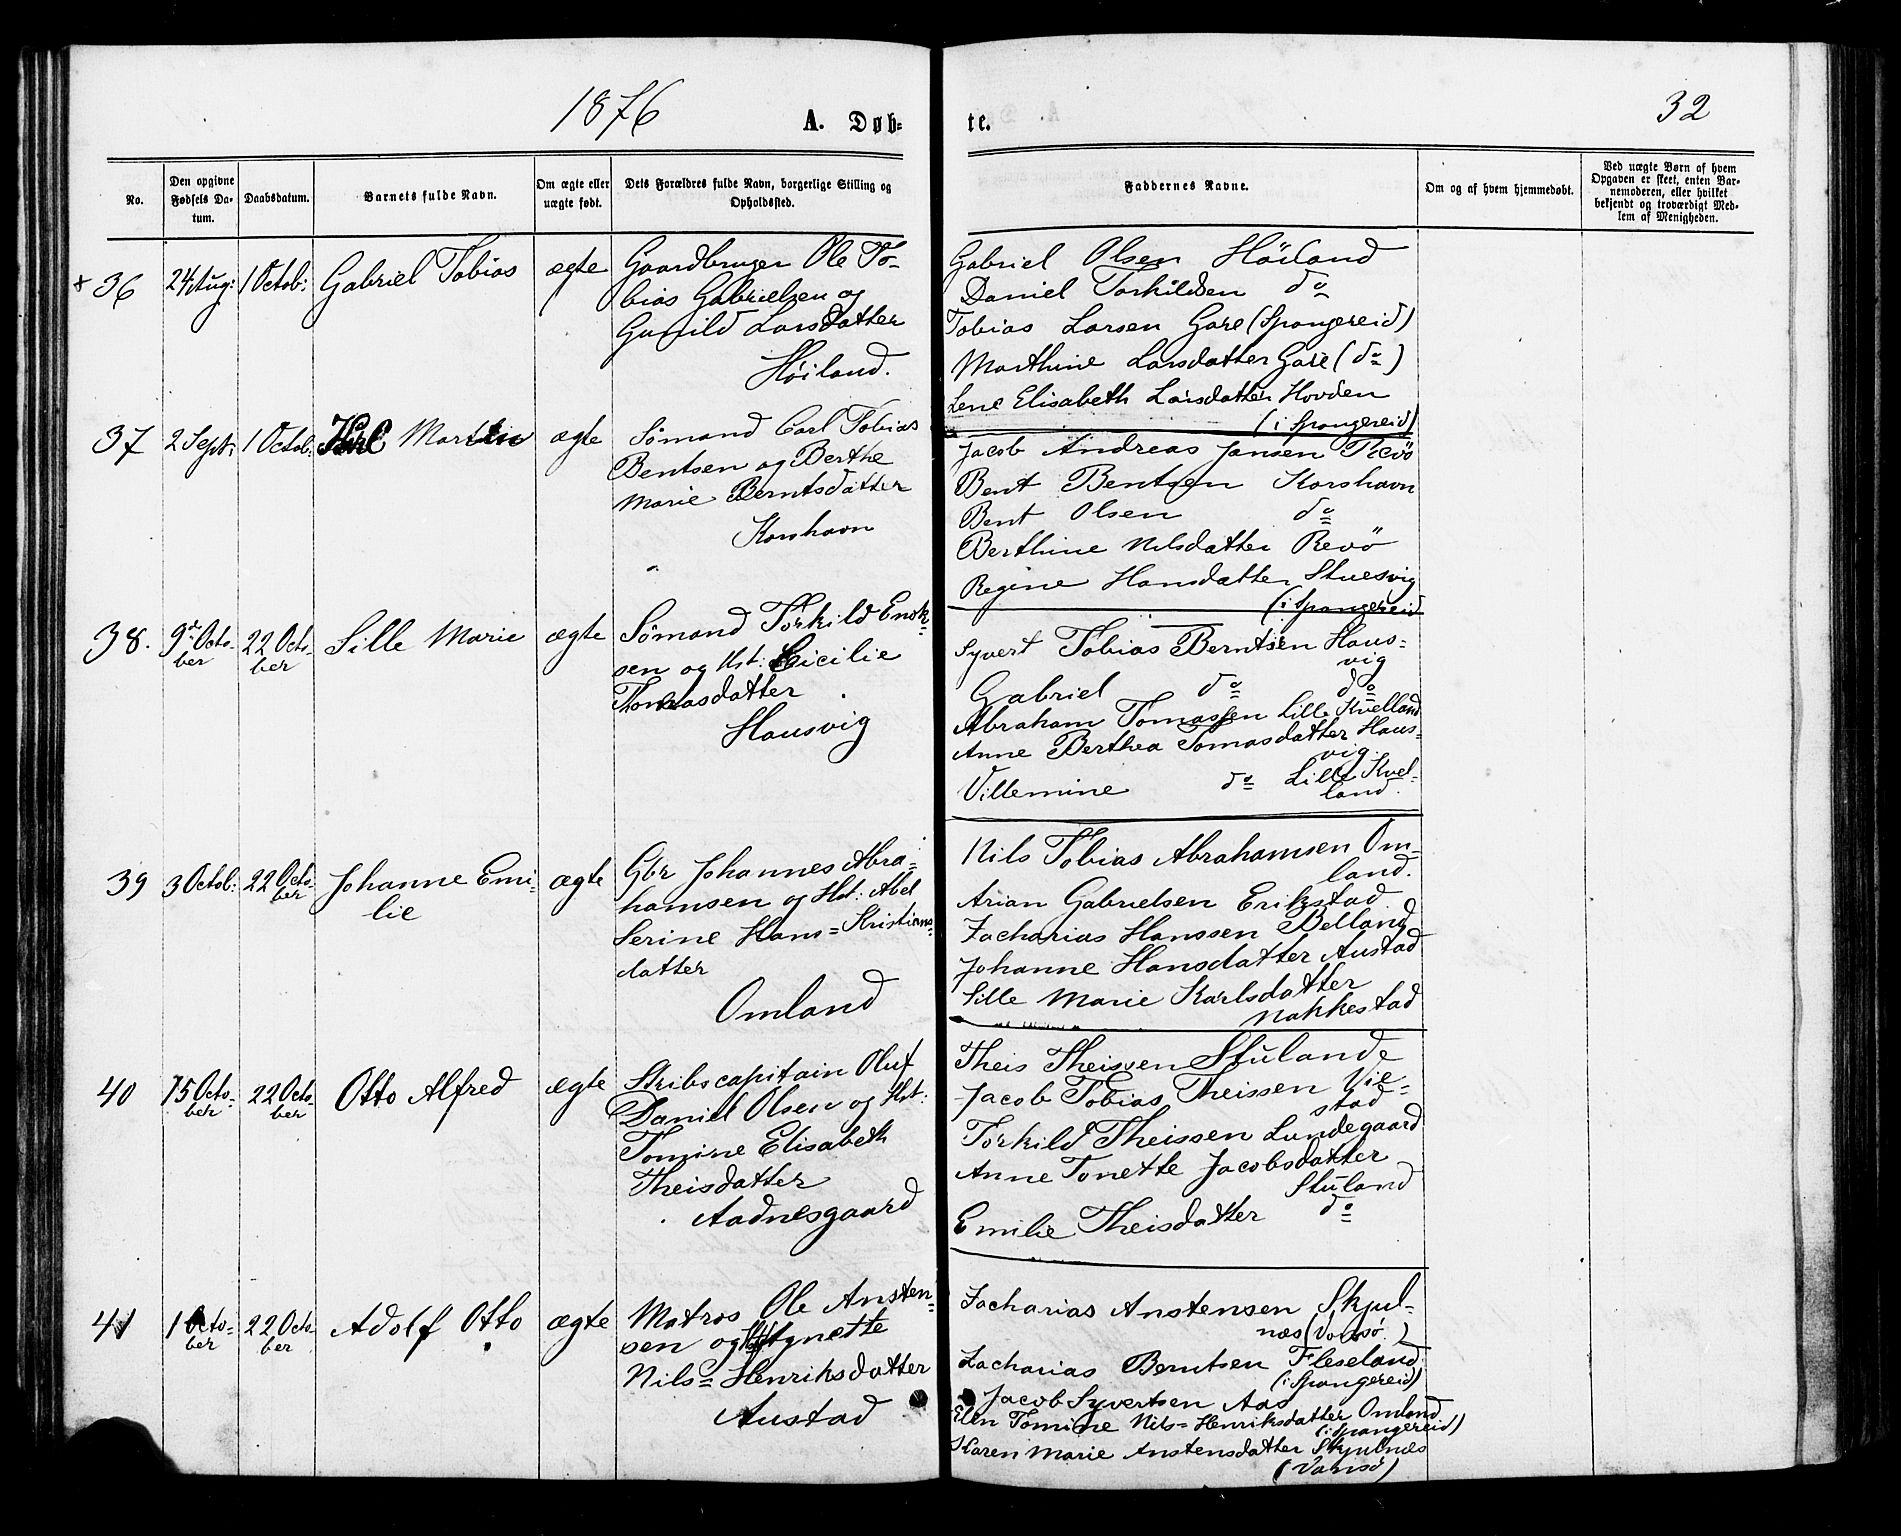 1876
A. Døb-
te.
32
No.
Den opgivne
Fødsels Da-
tum.
Daabsdatum.
Barnets fulde Navn.
Om ægte eller
uægte født.
Dets Forældres fulde Navn, borgerlige Stilling og
Opholdssted.
Faddernes Navne.
Om og af hvem hjemmedøbt.
Ved uægte Børn af hvem
Opgaven er skeet, enten Bar-
nemoderen, eller hvilket
bekjendt og troværdigt Med-
lem af Menigheden.
+ 36
24 Aug:
1 Octob:
Gabriel Tobias
ægte
Gaardbruger Ole To-
bias Gabrielsen og
Gunild Larsdatter
Höiland.
Gabriel Olsen Höiland
Daniel Torkildsen do
Tobias Larsen Gare (Spangereid)
Marthine Larsdatter Gare (do)
Lene Elisabeth Larsdatter Hovden
(i Spangereid)
37
2 Sept:
1 Octob:
Karl Martin
ægte
Sömand Carl Tobias
Bentsen og Berthe
Marie Berntsdatter
Korshavn
Jacob Andreas Jansen Revö
Bent Bentsen Korshavn
Bent Olsen do
Berthine Nilsdatter Revö
Regine Hansdatter Stuesvig
(i Spangereid
38.
9de Octo-
ber
22 Octo-
ber
Sille Marie
ægte
Sömand Torkild Enok-
sen og Hst: Cicilie
Thomasdatter
Hausvig
Syvert Tobias Berntsen Haus-
vig
Gabriel do do
Abraham Tomassen Lille Kvelland
Anne Berthea Tomasdatter Haus-
vig.
Villemine do Lille Kvel-
land.
39
3 Octob:
22 Octo-
ber
Johanne Emi-
lie
ægte
Gbr Johannes Abra-
hamsen og Hst: Abel
Serine Hans=Kristians-
datter
Omland
Nils Tobias Abrahamsen Om-
land.
Arian Gabrielsen Erikstad
Zacharias Hanssen Belland
Johanne Hansdatter Austad
Sille Marie Karlsdatter
Nakkestad
40
15 Octo-
ber
22 Octo-
ber
Otto Alfred
ægte
Skibscapitain Oluf
Daniel Olsen og Hst:
Tomine Elisabeth
Theisdatter
Aadnesgaard
Theis Theissen Stulande
Jacob Tobias Theissen Vie-
stad
Torkild Theissen Lundegaard
Anne Tonette Jacobsdatter
Stuland
Emilie Theisdatter do
41
1 Octo-
ber
22 Octo-
ber
Adolf Otto
ægte
Matros Ole Ansten-
sen og Hst: Agnette
Nils=Henriksdatter
Austad
Zacharias Anstensen Skjul-
næs (Vansö.)
Zacharias Berntsen Fleseland
(i Spangereid)
Jacob Syvertsen Aas
Elen Tomine Nils=Henriksdatter Omland
(i Spangereid)
Karen Marie Anstensdatter Skjulnes
(Vansö)